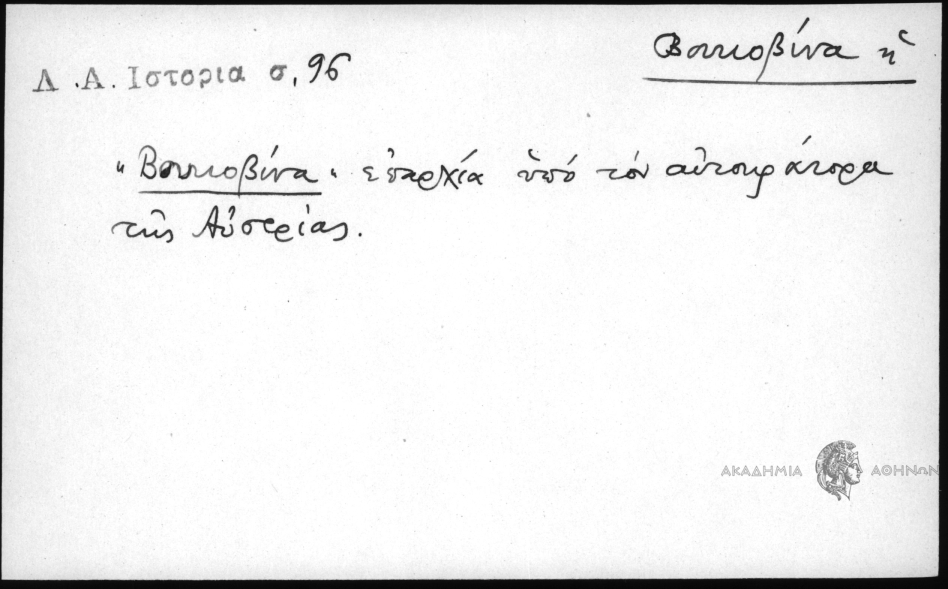 Βουκοβίνα ἡ
Λ.Α. Ιστορια σ. 96
"Βουκοβίνα" ἐπαρχία ὑπό τόν αὐτοκράτορα
τῆς Αὐστρίας.
ΑΚΑΔΗΜΙΑ ΑΘΗΝΩΝ